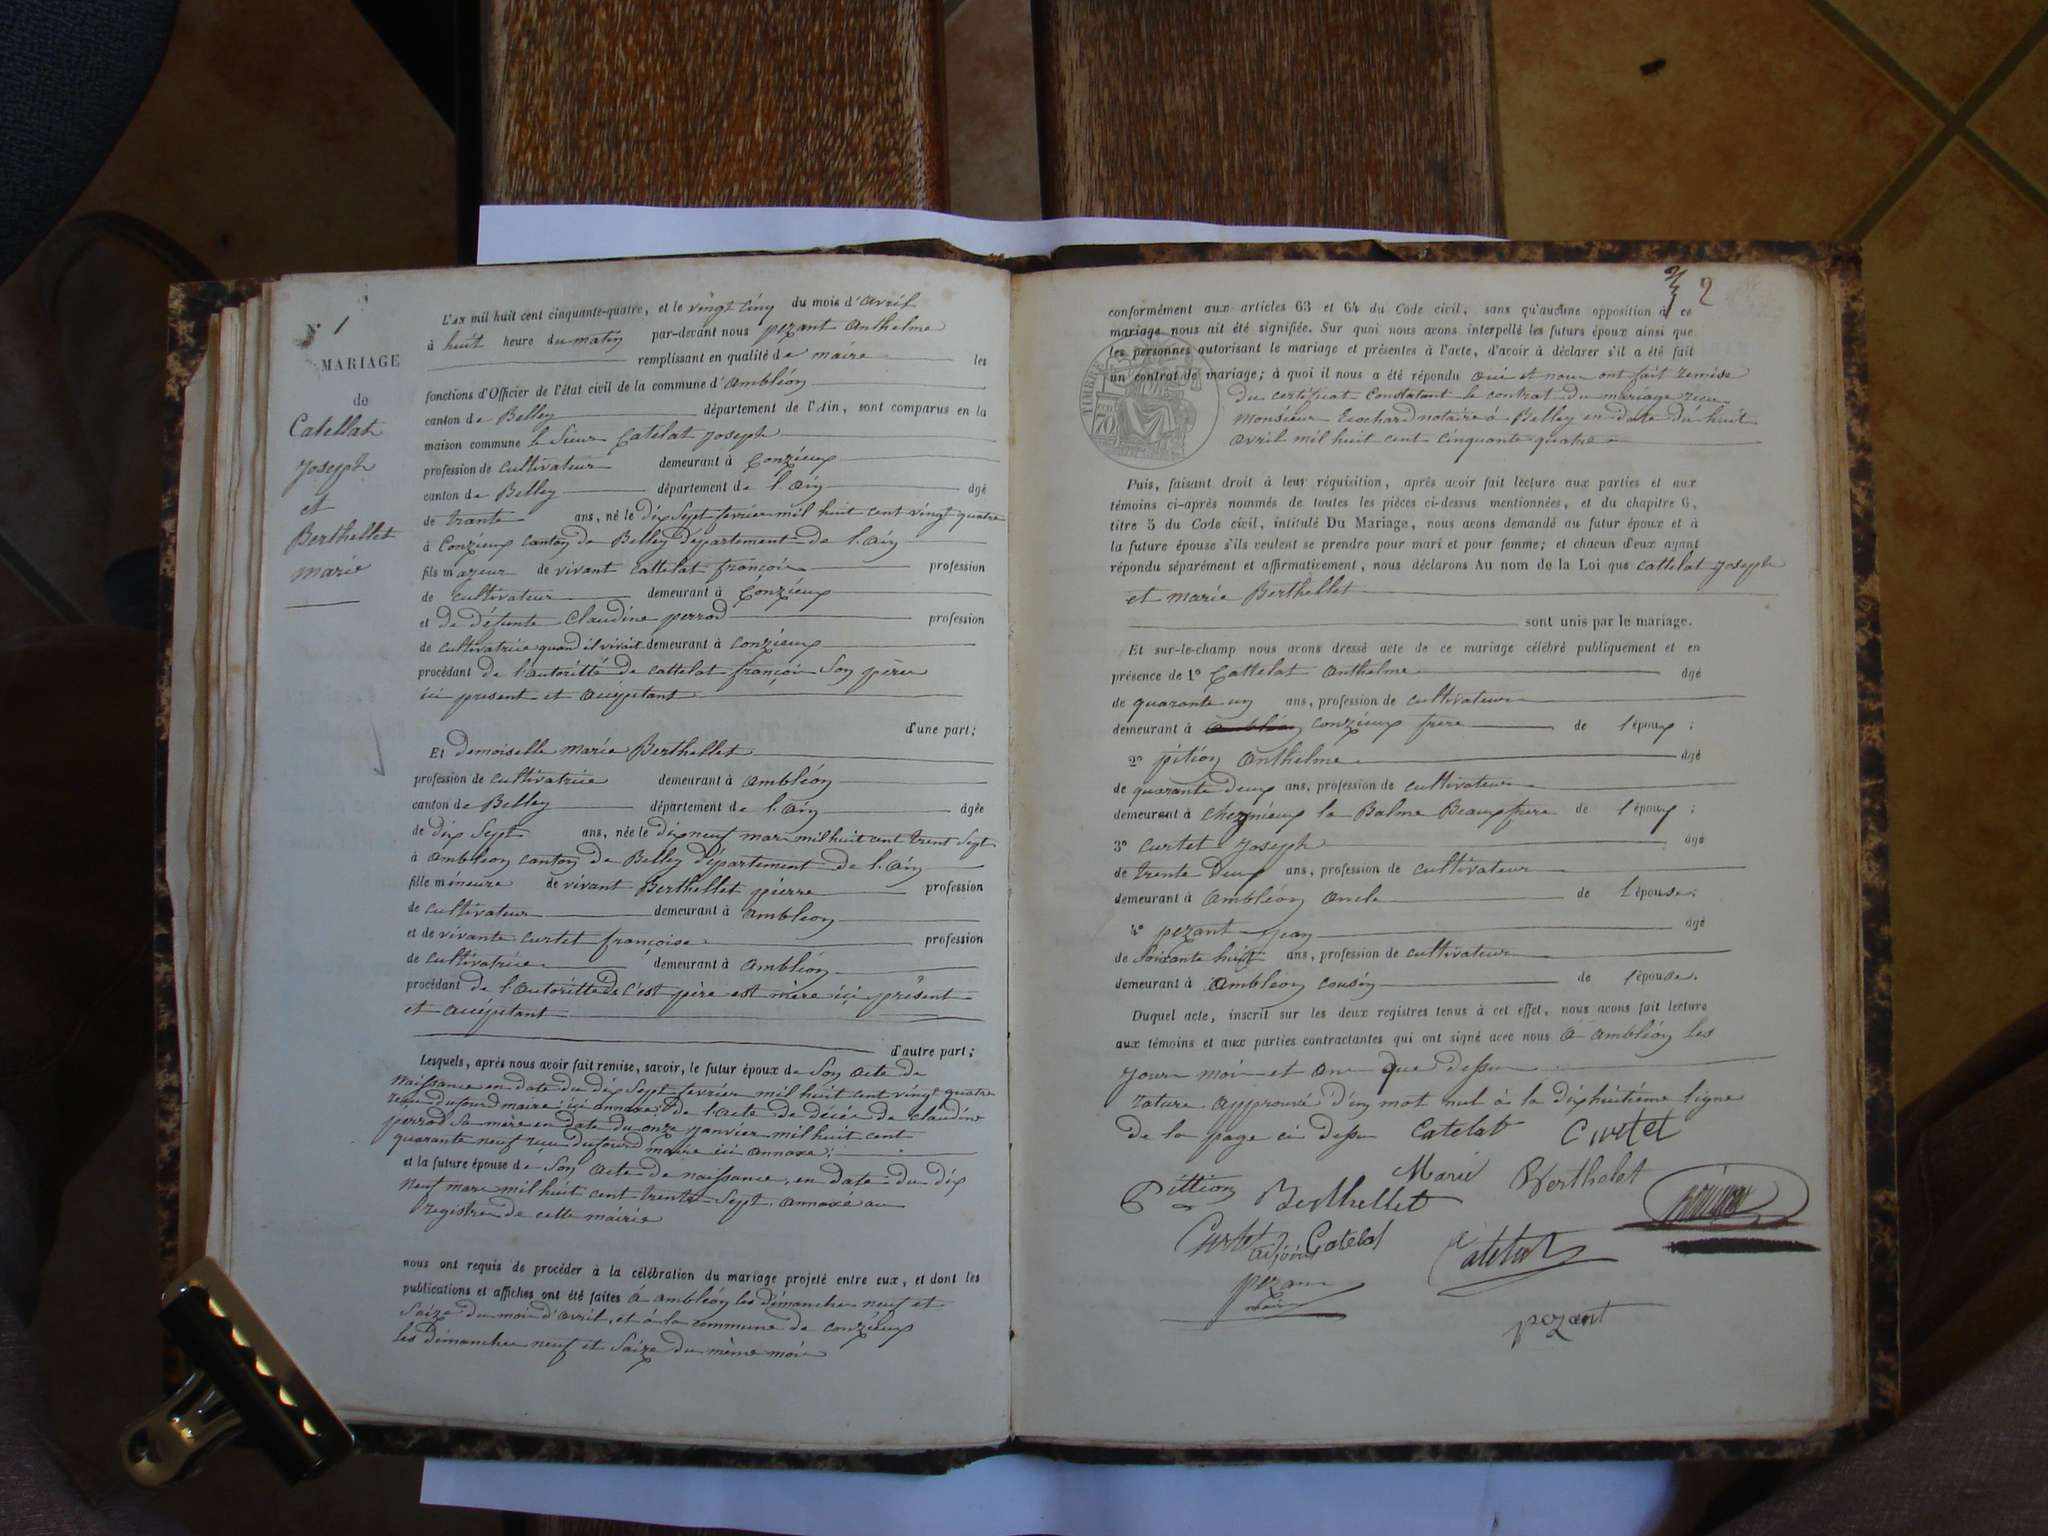 N° 1
MARIAGE
de
Catellat
Joseph
et
Berthellet
marie
L'AN mil huit cent cinquante-quatre, et le vingt cinq du mois d'avril
à huit heure du matin par-devant nous pezant anthelme
remplissant en qualité de maire les
fonctions d'Officier de l'état civil de la commune d'ambléon
canton de Belley département de l'Ain, sont comparus en la
maison commune le Sieur Catelat joseph
profession de cultivateur demeurant à Conzieux
canton de Belley département de l'ain âgé
de trante ans, né le dix Sept fevrier mil huit cent vingt quatre
à Conzieux canton de Belley département de l'ain
fils majeur de vivant cattelat françois profession
de cultivateur demeurant à Conzieux
et de défunte Claudine perrod profession
de cultivatrice quand il vivait demeurant à conzieux
procédant de l'autoritté de cattelat françois Son père
ici present et accéptant
d'une part;
Et demoiselle marie Berthellet
profession de cultivatrice demeurant à ambléon
canton de Belley département de l'ain âgée
de dix Sept ans, née le dix neuf mars mil huit cent trent Sept
à ambleon canton de Belley département de l'ain
fille mineure de vivant Berthellet pierre profession
de cultivateur demeurant à ambléon
et de vivante curtet françoise profession
de cultivatrice demeurant à ambléon
procédant de l'autoritté de c'est père est mère ici présent
et accéptant
d'autre part;
Lesquels, après nous avoir fait remise, savoir, le futur époux de Son acte de
naissance en date du dix Sept fevrier mil huit cent vingt quatre
reçu dufourd maire ici annaxé; de l'acte de décée de claudine
perrod Sa mère en date du onze janvier mil huit cent
quarante neuf reçu dufourd maire ici annaxé;
et la future épouse de Son acte de naissance, en date du dix
neuf mars mil huit cent trente Sept annaxé au
registre de cette mairie
nous ont requis de procéder à la célébration du mariage projeté entre eux, et dont les
publications et affiches ont été faites à ambléon les dimanches neuf et
Saize du mois d'avril, et à la commune de conzieux
les dimanches neuf et Saize du même mois
2
conformément aux articles 63 et 64 du Code civil, sans qu'aucune opposition à ce
mariage nous ait été signifiée. Sur quoi nous avons interpellé les futurs époux ainsi que
les personnes autorisant le mariage et présentes à l'acte, d'avoir à déclarer s'il a été fait
un contrat de mariage; à quoi il nous a été répondu oui et nous ont fait remise
du certificat Constatant le contrat du mariage reçu
Monsieur Trochard notaire à Belley en date du huit
avril mil huit cent cinquante quatre
TIMBRE
70
Puis, faisant droit à leur réquisition, après avoir fait lecture aux parties et aux
témoins ci-après nommés de toutes les pièces ci-dessus mentionnées, et du chapitre 6,
titre 5 du Code civil, intitulé Du Mariage, nous avons demandé au futur époux et à
la future épouse s'ils veulent se prendre pour mari et pour femme; et chacun d'eux ayant
répondu séparément et affirmativement, nous déclarons Au nom de la Loi que cattelat joseph
et marie Berthellet
sont unis par le mariage.
Et sur-le-champ nous avons dressé acte de ce mariage célébré publiquement et en
présence de 1° Cattelat anthelme âgé
de quarante un ans, profession de cultivateur
demeurant à ambléon conzieux frere de l'époux;
2° pition anthelme âgé
de quarante deux ans, profession de cultivateur
demeurant à la Balme Beaux frere de l'époux;
3° curtet joseph âgé
de trente deux ans, profession de cultivateur
demeurant à ambléon oncle de l'épouse;
4° pezant jean âgé
de Soixante huit ans, profession de cultivateur
demeurant à ambleon cousin de l'épouse.
Duquel acte, inscrit sur les deux registres tenus à cet effet, nous avons fait lecture
aux témoins et aux parties contractantes qui ont signé avec nous à ambléon les
jour mois et an que dessus
rature approuvé d'un mot nul à la dixhuitième ligne
de la page ci dessu Catelat Curtet
Pittion Berthellet Marie Berthelet
Curtet adjoint Catelat Catelat
pezant
maire
pezant